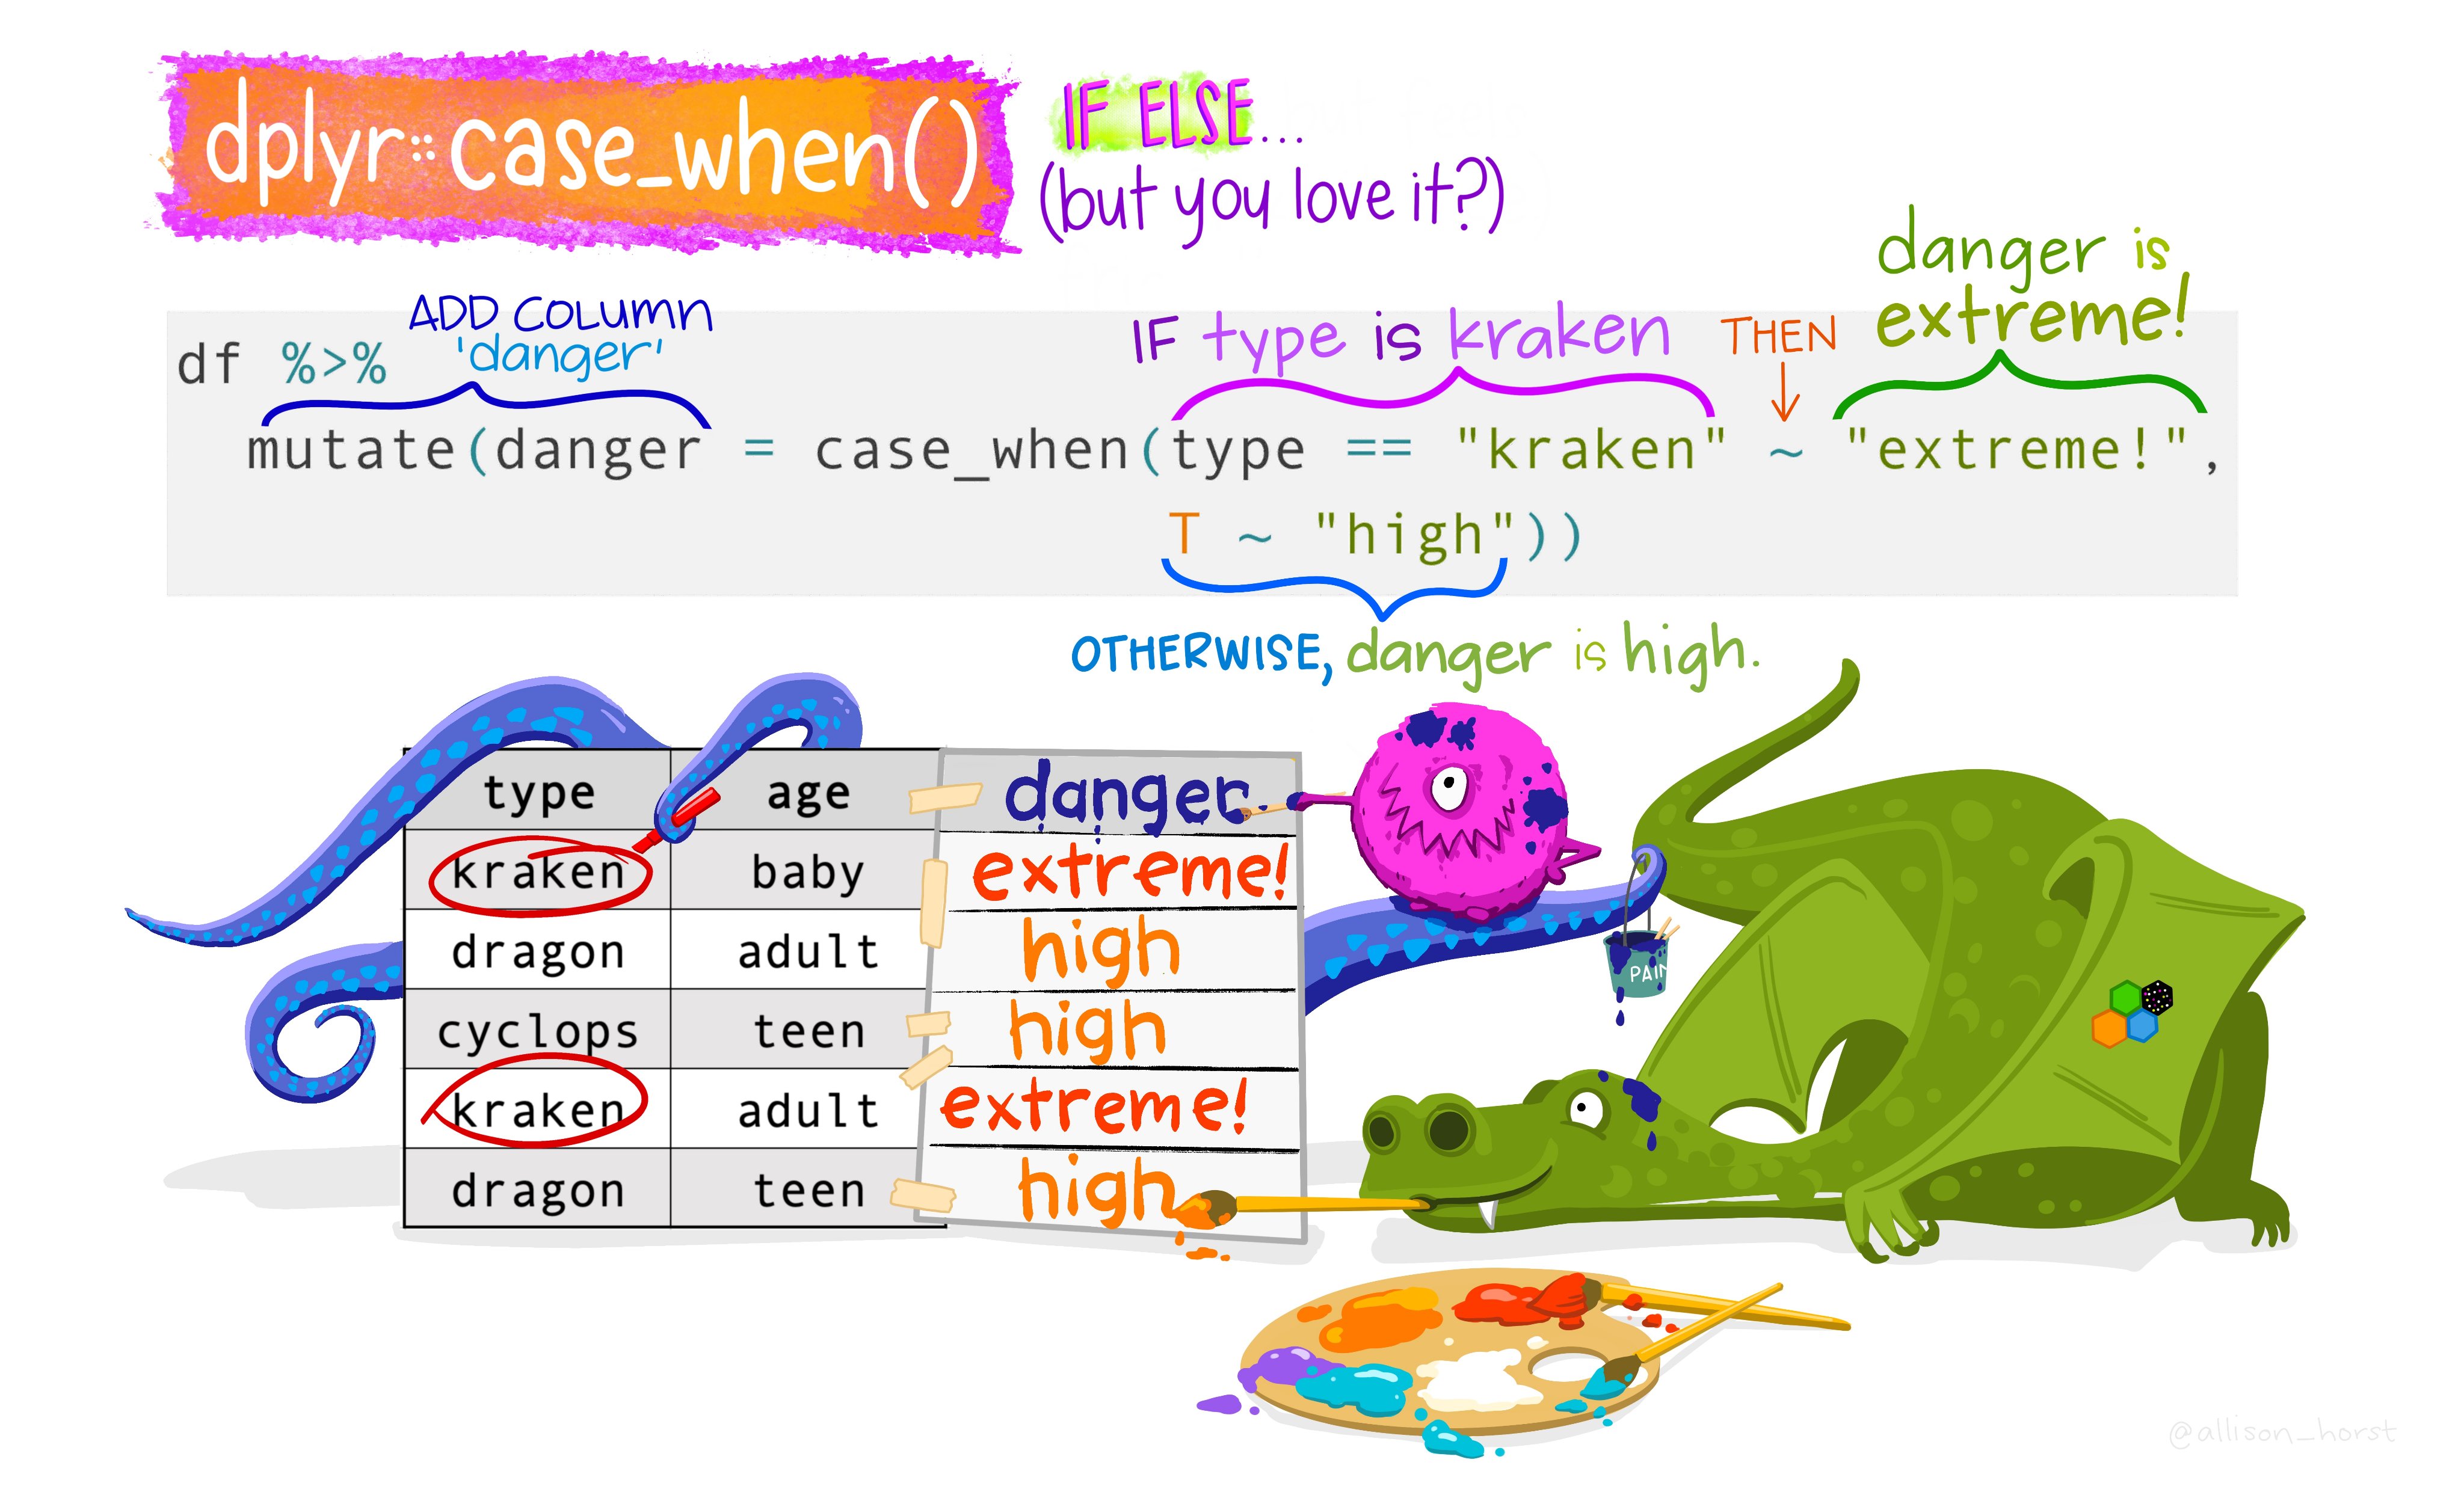 dplyr::case_when()
IF ELSE...
(but you love it?)
ADD COLUMN
'danger'
IF type is kraken
THEN
danger is
extreme!
df %>%
mutate(danger = case_when(type == "kraken" ~ "extreme!",
T ~ "high"))
OTHERWISE, danger is high.
type age danger
kraken baby extreme!
dragon adult high
cyclops teen high
kraken adult extreme!
dragon teen high
PAIN
@allison_horst